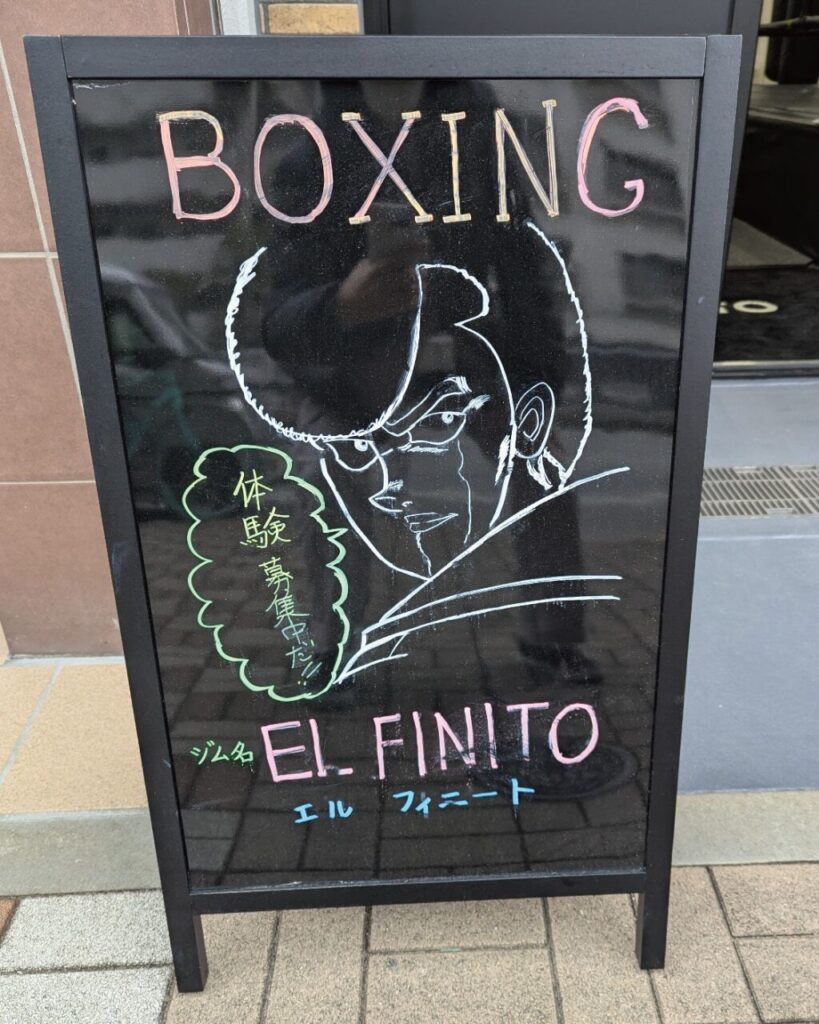 BOXING
体験
募集中だ!!
ジム名 EL FINITO
エル フィニート